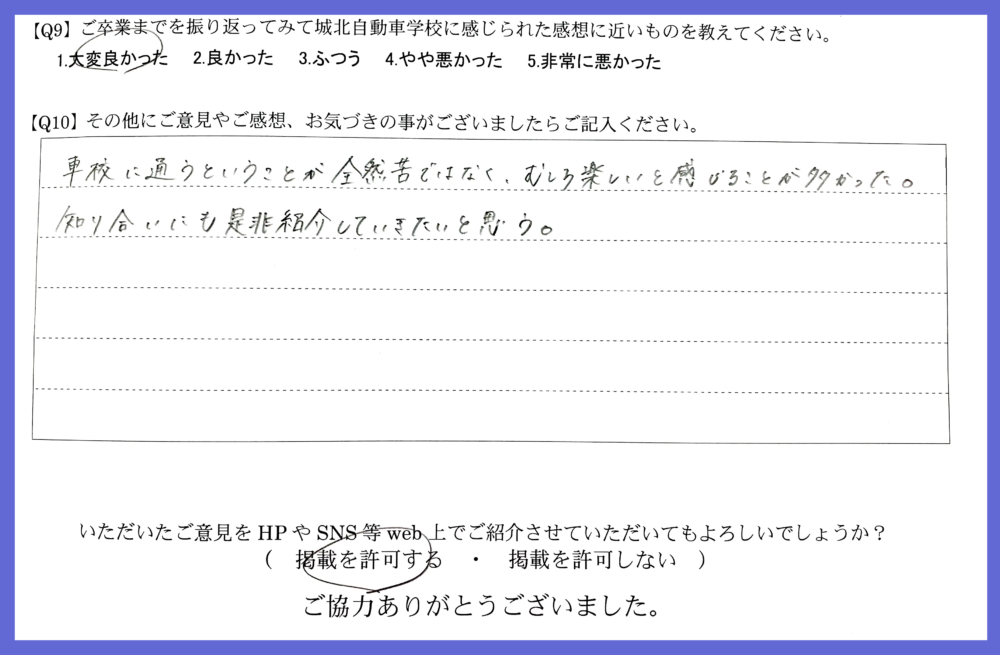 【Q9】ご卒業までを振り返ってみて城北自動車学校に感じられた感想に近いものを教えてください。
1.大変良かった 2.良かった 3.ふつう 4.やや悪かった 5.非常に悪かった
【Q10】その他にご意見やご感想、お気づきの事がございましたらご記入ください。
車校に通うということが全然苦ではなく、むしろ楽しいと感じることが多かった。
知り合いにも是非紹介していきたいと思う。
いただいたご意見をHPやSNS等web上でご紹介させていただいてもよろしいでしょうか？
（ 掲載を許可する ・ 掲載を許可しない ）
ご協力ありがとうございました。